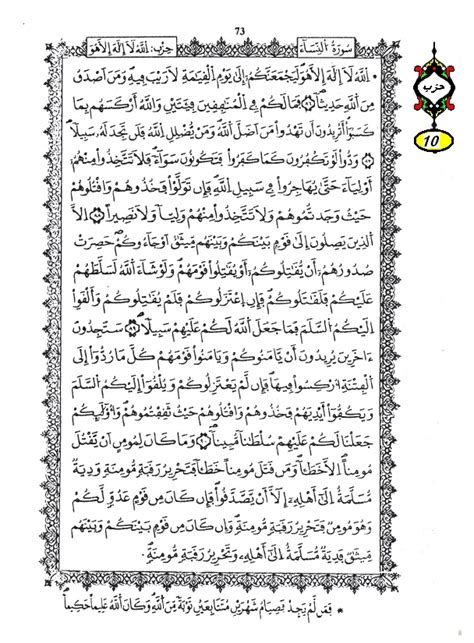 73
سُورَةُ النِّسَاءِ
حِزْب: اَللَّهُ لَا إِلَهَ إِلَّا هُوَ
حزب
10
اَللَّهُ لَا إِلَهَ إِلَّا هُوَ لَيَجْمَعَنَّكُمْ إِلَى يَوْمِ الْقِيَمَةِ لَا رَيْبَ فِيهِ وَمَنَ اَصْدَقُ
مِنَ اللَّهِ حَدِيثاً فَمَا لَكُمْ فِي الْمُنَفِقِينَ فِئَتَيْنِ وَاللَّهُ أَرْكَسَهُم بِمَا
كَسَبُواْ أَتُرِيدُونَ أَن تَهْدُواْ مَنَ اَضَلَّ اللَّهُ وَمَنْ يُّضْلِلِ اللَّهُ فَلَن تَجِدَ لَهُ سَبِيلاً
وَدُّواْ لَوْ تَكْفُرُونَ كَمَا كَفَرُواْ فَتَكُونُونَ سَوَآءً فَلَا تَتَّخِذُواْ مِنْهُمُ
أَوْلِيَآءَ حَتَّى يُهَاجِرُواْ فِي سَبِيلِ اللَّهِ فَإِن تَوَلَّوْاْ فَخُذُوهُمْ وَاقْتُلُوهُمْ
حَيْثُ وَجَدتُّمُوهُمْ وَلَا تَتَّخِذُواْ مِنْهُمْ وَلِيّاً وَلَا نَصِيراً اِلَّا
اَلذِينَ يَصِلُونَ إِلَى قَوْمٍ بَيْنَكُمْ وَبَيْنَهُم مِّيثَقٌ اَوْ جَآءُوكُمْ حَصِرَتْ
صُدُورُهُمُ أَنْ يُّقَتِلُوكُمُ أَوْ يُقَتِلُواْ قَوْمَهُمْ وَلَوْ شَآءَ اَللَّهُ لَسَلَّطَهُمْ
عَلَيْكُمْ فَلَقَتَلُوكُمْ فَإِنِ اِعْتَزَلُوكُمْ فَلَمْ يُقَتِلُوكُمْ وَأَلْقَوِاْ
اِلَيْكُمُ السَّلَمَ فَمَا جَعَلَ اَللَّهُ لَكُمْ عَلَيْهِمْ سَبِيلاً سَتَجِدُونَ
ءَاخَرِينَ يُرِيدُونَ أَنْ يَّامَنُوكُمْ وَيَامَنُواْ قَوْمَهُمْ كُلَّ مَا رُدُّواْ إِلَى
اَلْفِتْنَةِ أُرْكِسُواْ فِيهَا فَإِن لَّمْ يَعْتَزِلُوكُمْ وَيُلْقُواْ إِلَيْكُمُ السَّلَمَ
وَيَكُفُّواْ أَيْدِيَهُمْ فَخُذُوهُمْ وَاقْتُلُوهُمْ حَيْثُ ثَقِفْتُمُوهُمْ وَأُوْلَئِكُمْ
جَعَلْنَا لَكُمْ عَلَيْهِمْ سُلْطَناً مُّبِيناً وَمَا كَانَ لِمُومِنٍ اَنْ يَّقْتُلَ
مُومِناً اِلَّا خَطَئاً وَمَن قَتَلَ مُومِناً خَطَئاً فَتَحْرِيرُ رَقَبَةٍ مُّومِنَةٍ وَدِيَةٌ
مُّسَلَّمَةٌ اِلَى أَهْلِهِ إِلَّا أَنْ يَّصَّدَّقُواْ فَإِن كَانَ مِن قَوْمٍ عَدُوٍّ لَّكُمْ
وَهُوَ مُومِنٌ فَتَحْرِيرُ رَقَبَةٍ مُّومِنَةٍ وَإِن كَانَ مِن قَوْمٍ بَيْنَكُمْ وَبَيْنَهُم
مِّيثَقٌ فَدِيَةٌ مُّسَلَّمَةٌ اِلَى أَهْلِهِ وَتَحْرِيرُ رَقَبَةٍ مُّومِنَةٍ
* فَمَن لَّمْ يَجِدْ فَصِيَامُ شَهْرَيْنِ مُتَتَابِعَيْنِ تَوْبَةً مِّنَ اَللَّهِ وَكَانَ اَللَّهُ عَلِيماً حَكِيماً *